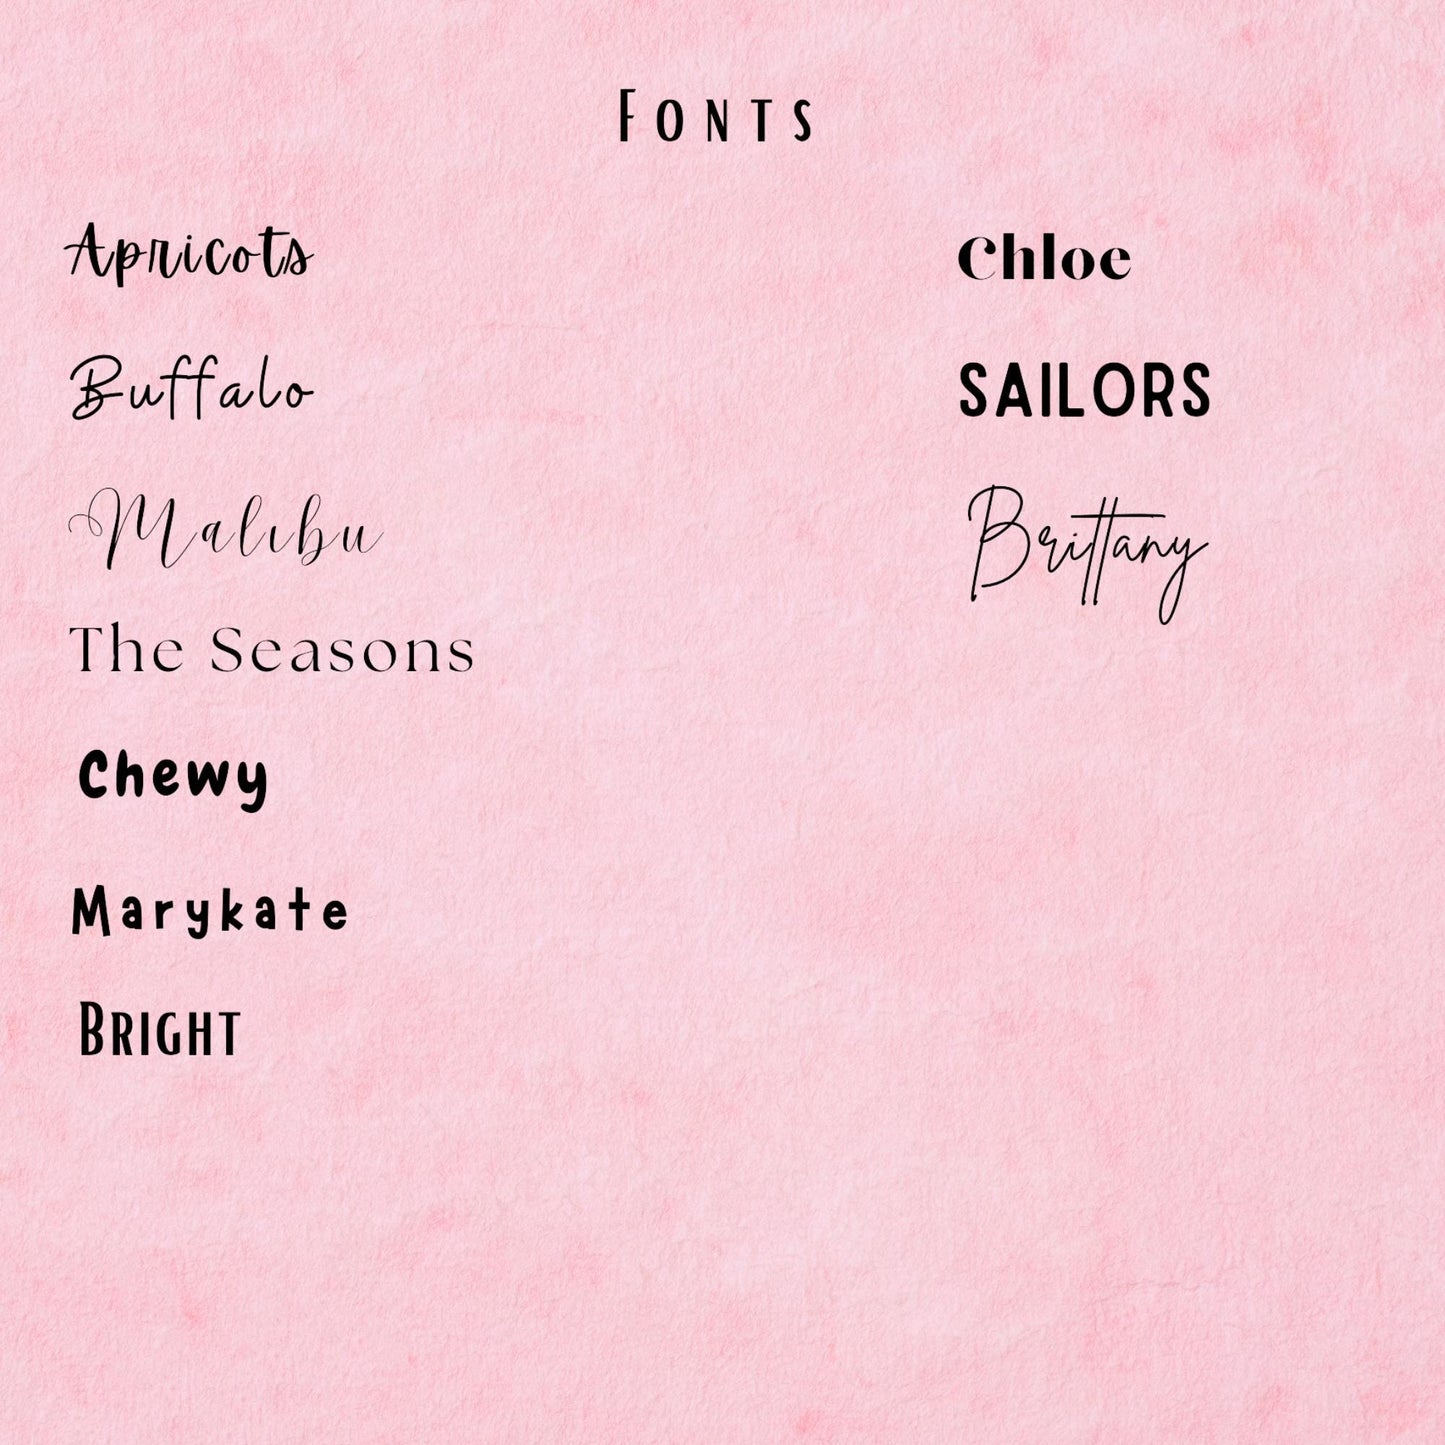 Fonts
Apricots
Buffalo
Malibu
The Seasons
Chewy
Marykate
Bright
Chloe
SAILORS
Brittany